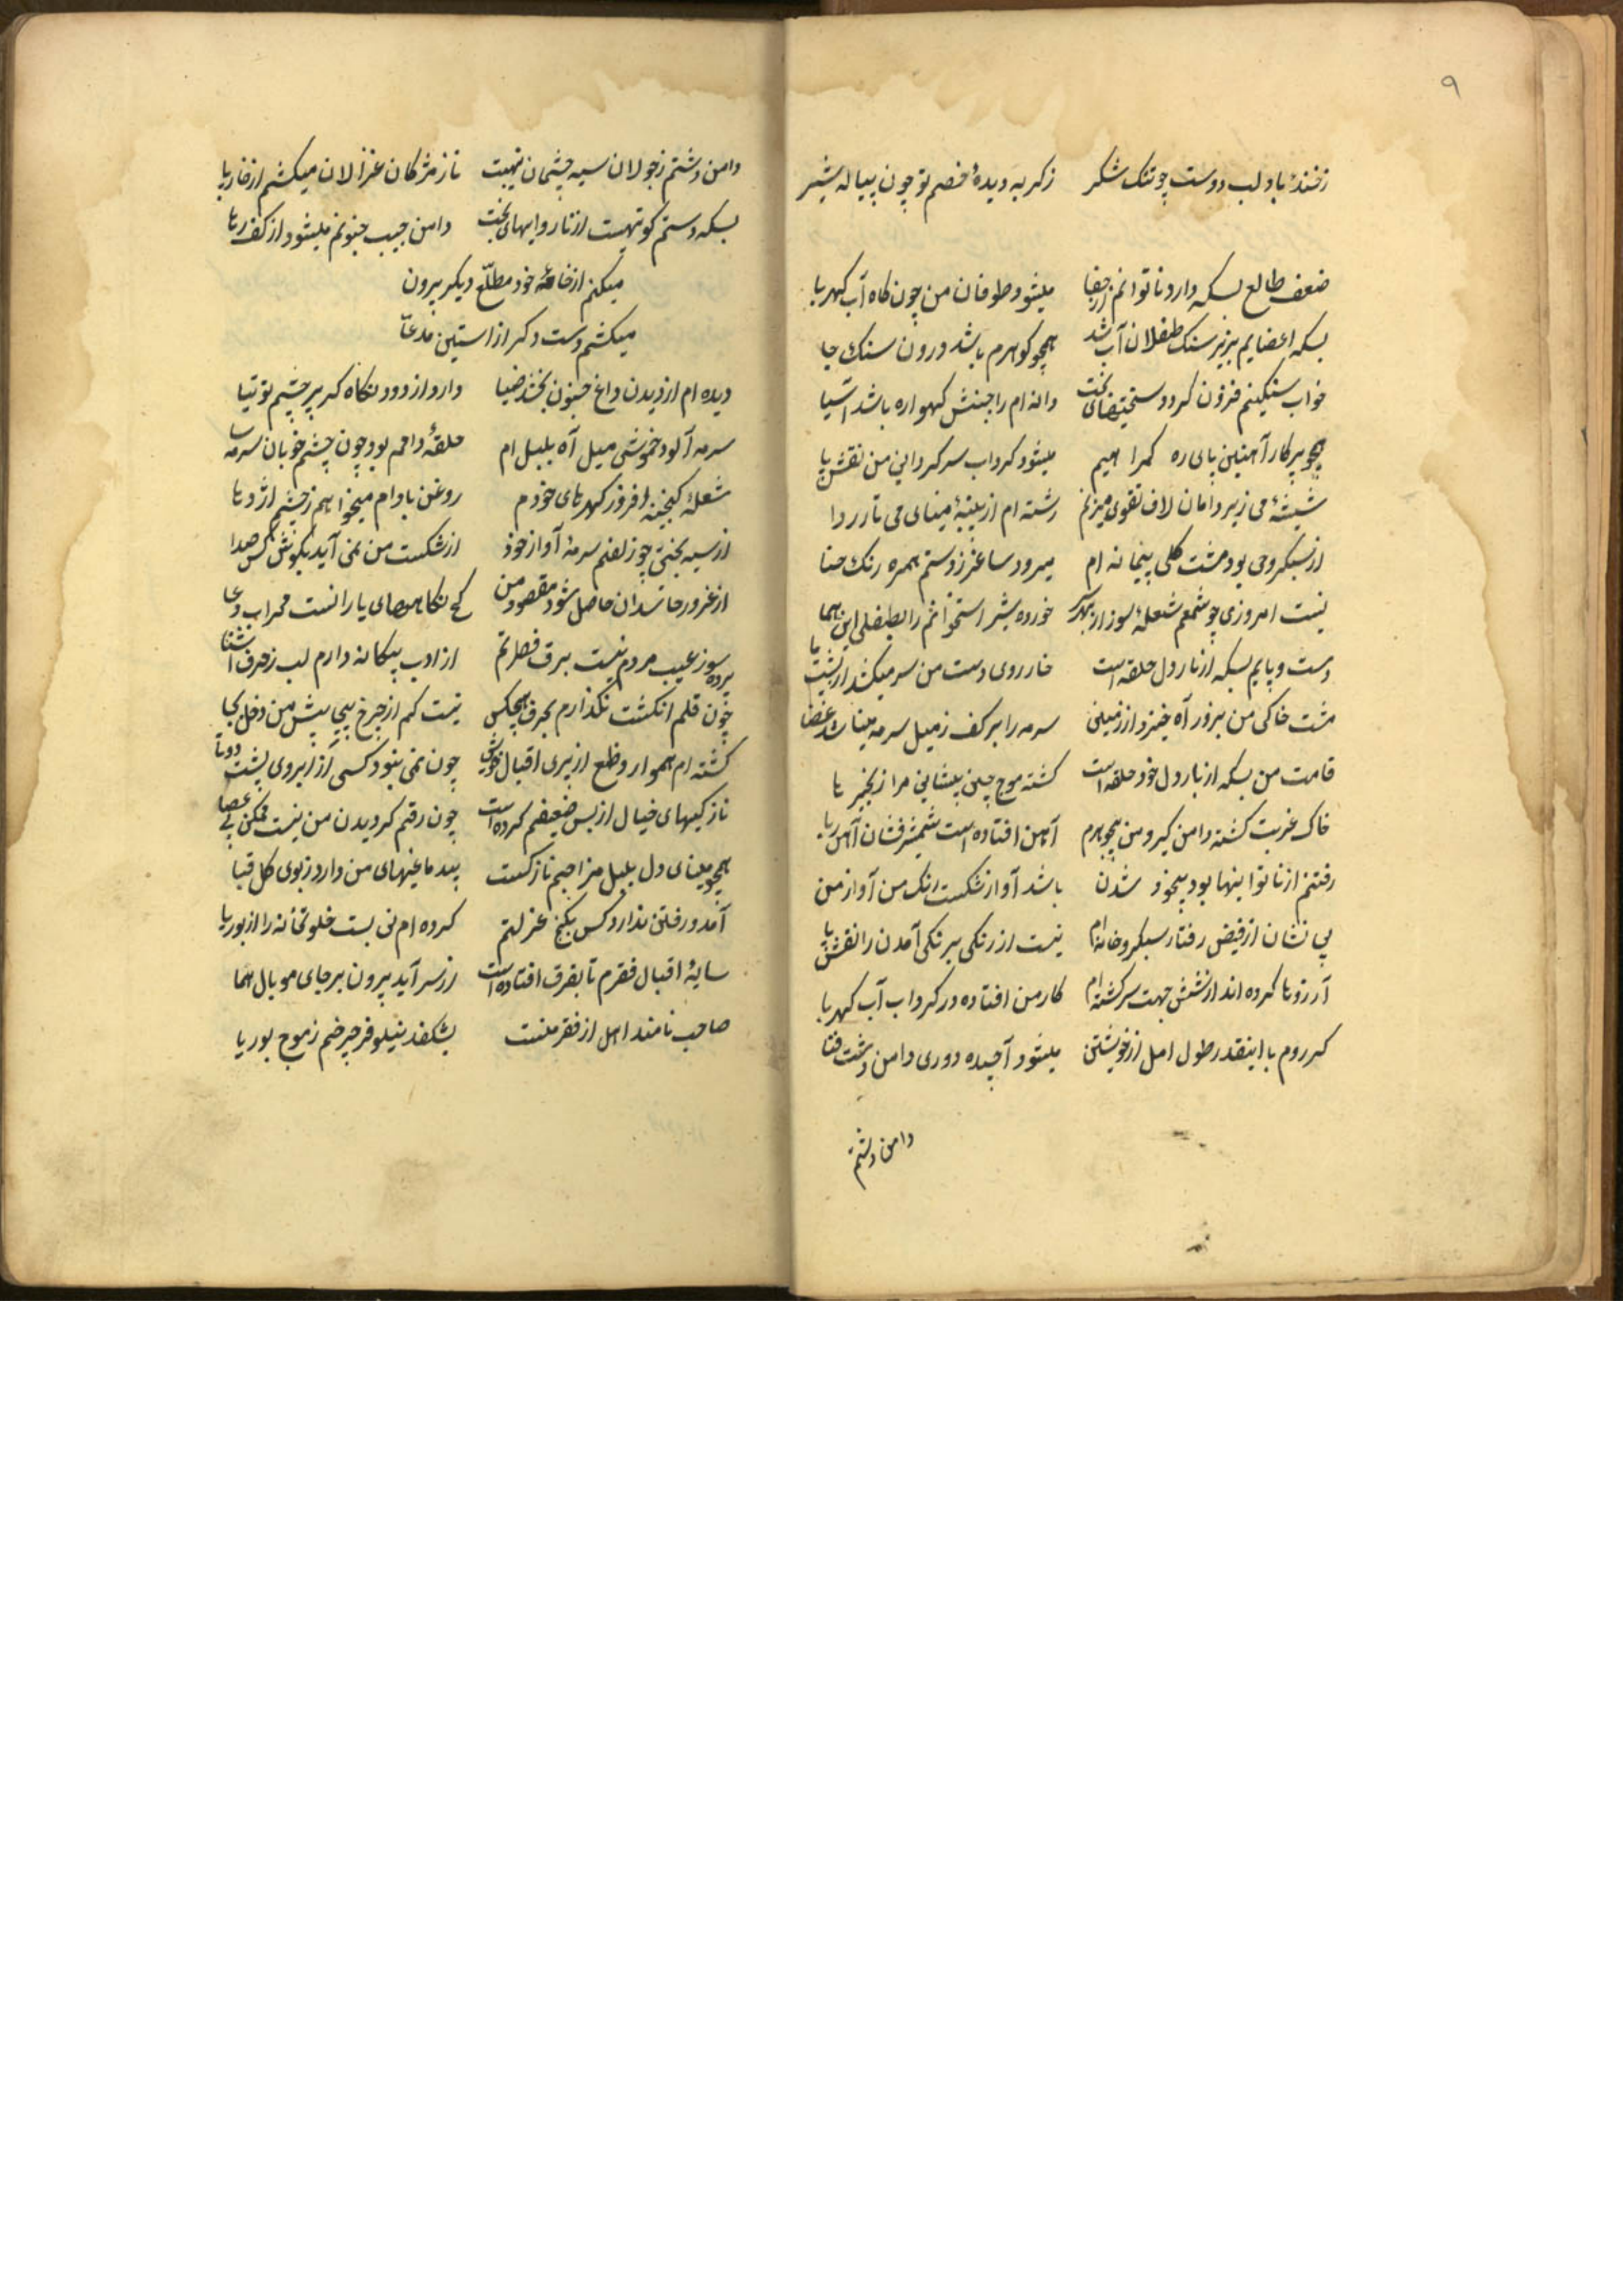 ۹
زخنده باد لب دوست چو تنک شکر زکریه دیدهٔ خصم تو چون پیاله شیر
ضعف طالع بسکه دارد ناتوانم از جفا میشود طوفان من چون کاه آب کهربا
بسکه اعضایم بزیر سنک طفلان آب شد همچو کوهرم باشد درون سنک جا
خواب سنکینم فزون کردد سختیهای بخت دانه ام را جنبش کهواره باشد آسیا
همچو پرکار آهنین پای ره کمراهیم میشود کرداب سرکردانی من نقش پا
شیشهٔ می زیر دامان لاف تقوی میزنم رشته ام از پنبهٔ مینای می دارد ردا
از سبکروحی بود مشت کلی پیمانه ام میرود ساغر ز دستم همره رنک حنا
نیست امروزی چو شمعم شعلهٔ سوز از جکر خورده شیر استخوانم را بطفلی این هما
دست و پایم بسکه از بار دل حلقه است خار روی دست من سر میکشد از پشت پا
مشت خاکی من بزور آه خیزد از زمین سرمه را بر کف ز میل سرمه میباشد عصا
قامت من بسکه از بار دل خود حلقه است کشته موج چین پیشانی مرا زنجیر پا
خاک غربت کشته دامن کیر و من همچو آهن افتاده است شمشیر آهن ربا
رفتنم از ناتوانیها بود بیخود شدن باشد آواز شکست رنک من آواز من
بی نشان از فیض رفتار سبکروحانه ام نیست از رنکی برنکی آمدن را نقش پا
آرزوها کرده اند از شش جهت سرکشته ام کار من افتاده در کرداب آب کهربا
کر روم با اینقدر طول امل از خویشتن میشود آچیده دوری دامن دشت فنا
دامن دشتم
دامن دشتم ز جولان سیه چشمان تهیست ناز مژکان غزالان میکشم از خار پا
بسکه دستم کوتهیست از نارواییهای بخت دامن جیب جنونم میشود از کف رها
میکنم از خامهٔ خود مطلع دیکر برون
میکشم دست دکر از آستین مدعا
دیده ام از دیدن داغ جنون بخشد ضیا دارد از دود نکاه کرم چشم توتیا
سرمه آلود خموشی میل آه بلبل ام حلقهٔ دامم بود چون چشم خوبان سرمه سا
شعلهٔ کنجینه افروز کهرهای خودم روغن بادام میخواهم ز چشم اژدها
از سیه بختی چو زلفم سرمهٔ آواز خود از شکست من نمی آید بکوش کس صدا
از غرور حاسدان حاصل شود مقصود من کج نکاهیهای یارانست محراب دعا
پرده سوز عیب مردم نیست برق فطرتم از ادب بیکانه دارم لب ز حرف آشنا
چون قلم انکشت نکذارم بحرف هیچکس نیست کم از چرخ پیچی پیش من دخل بجا
کشته ام هموار وضع از پیری اقبال خویش چون نمی بینود کسی آزار ابروی پشت دوتا
نازکیهای خیال از بس ضعیفم کرده است چون رقم کردیدن من نیست ممکن بی عصا
همچو مینای دل بلبل مزاجم نازکست بیدماغیهای من دارد ز بوی کل قبا
آمد و رفتن ندارد کس بکنج عزلتم کرده ام نی بست خلوتخانه را از بوریا
سایهٔ اقبال فقرم تا بفرق افتاده است از سر آید برون بر جای مو بال هما
صاحب نامند اهل از فقر منست بشکفد نیلوفر چرخم ز موج بوریا